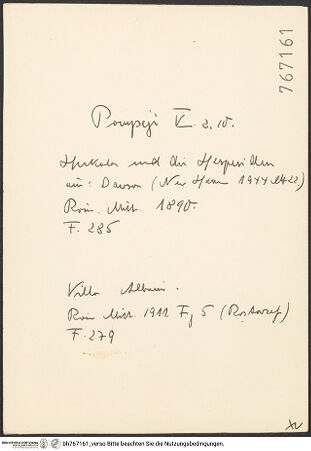 767161
Pompeji V. 2. 10.
Herkules und die Hesperiden
aus: Dawson (New Haven 1944
Röm. Mitt. 1890.
F. 285
Villa Albani.
Röm. Mitt. 1911 F, 5 (Rostowzef)
F. 279
bh767161_verso Bitte beachten Sie die Nutzungsbedingungen.